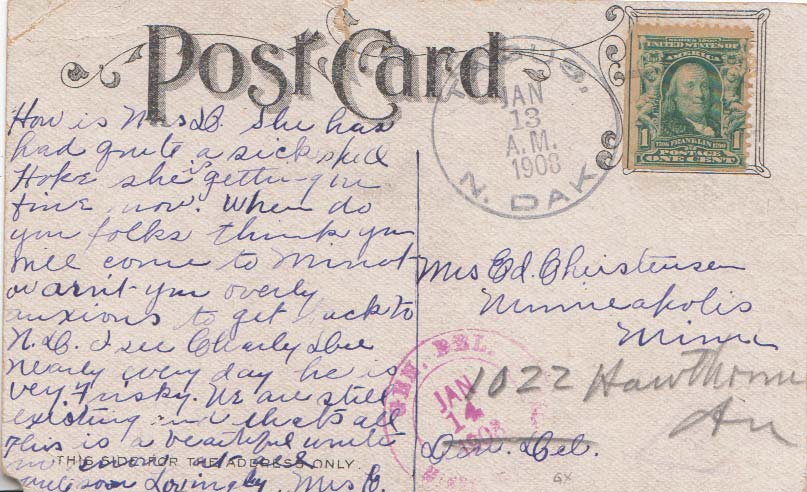 Post Card
How is Mrs D. She has
had quite a sick spell
Hope she getting on
fine now. When do
you folks think you
will come to Minot
or arn't you overly
anxious to get back to
N.D. I see Charly
nearly every day he is
very frisky. We are still
existing and that's all
This is a beautiful
THIS SIDE FOR THE ADDRESS ONLY.
soon Lovingly Mrs
N. DAK.
JAN
13
A.M.
1908
UNITED STATES OF
AMERICA
1706 FRANKLIN 1790
1
POSTAGE
ONE CENT
Mrs Ed. Christensen
Minneapolis
Minn
1022 Hawthorn
Av
Gen. Del.
GEN. DEL.
JAN
14
1908